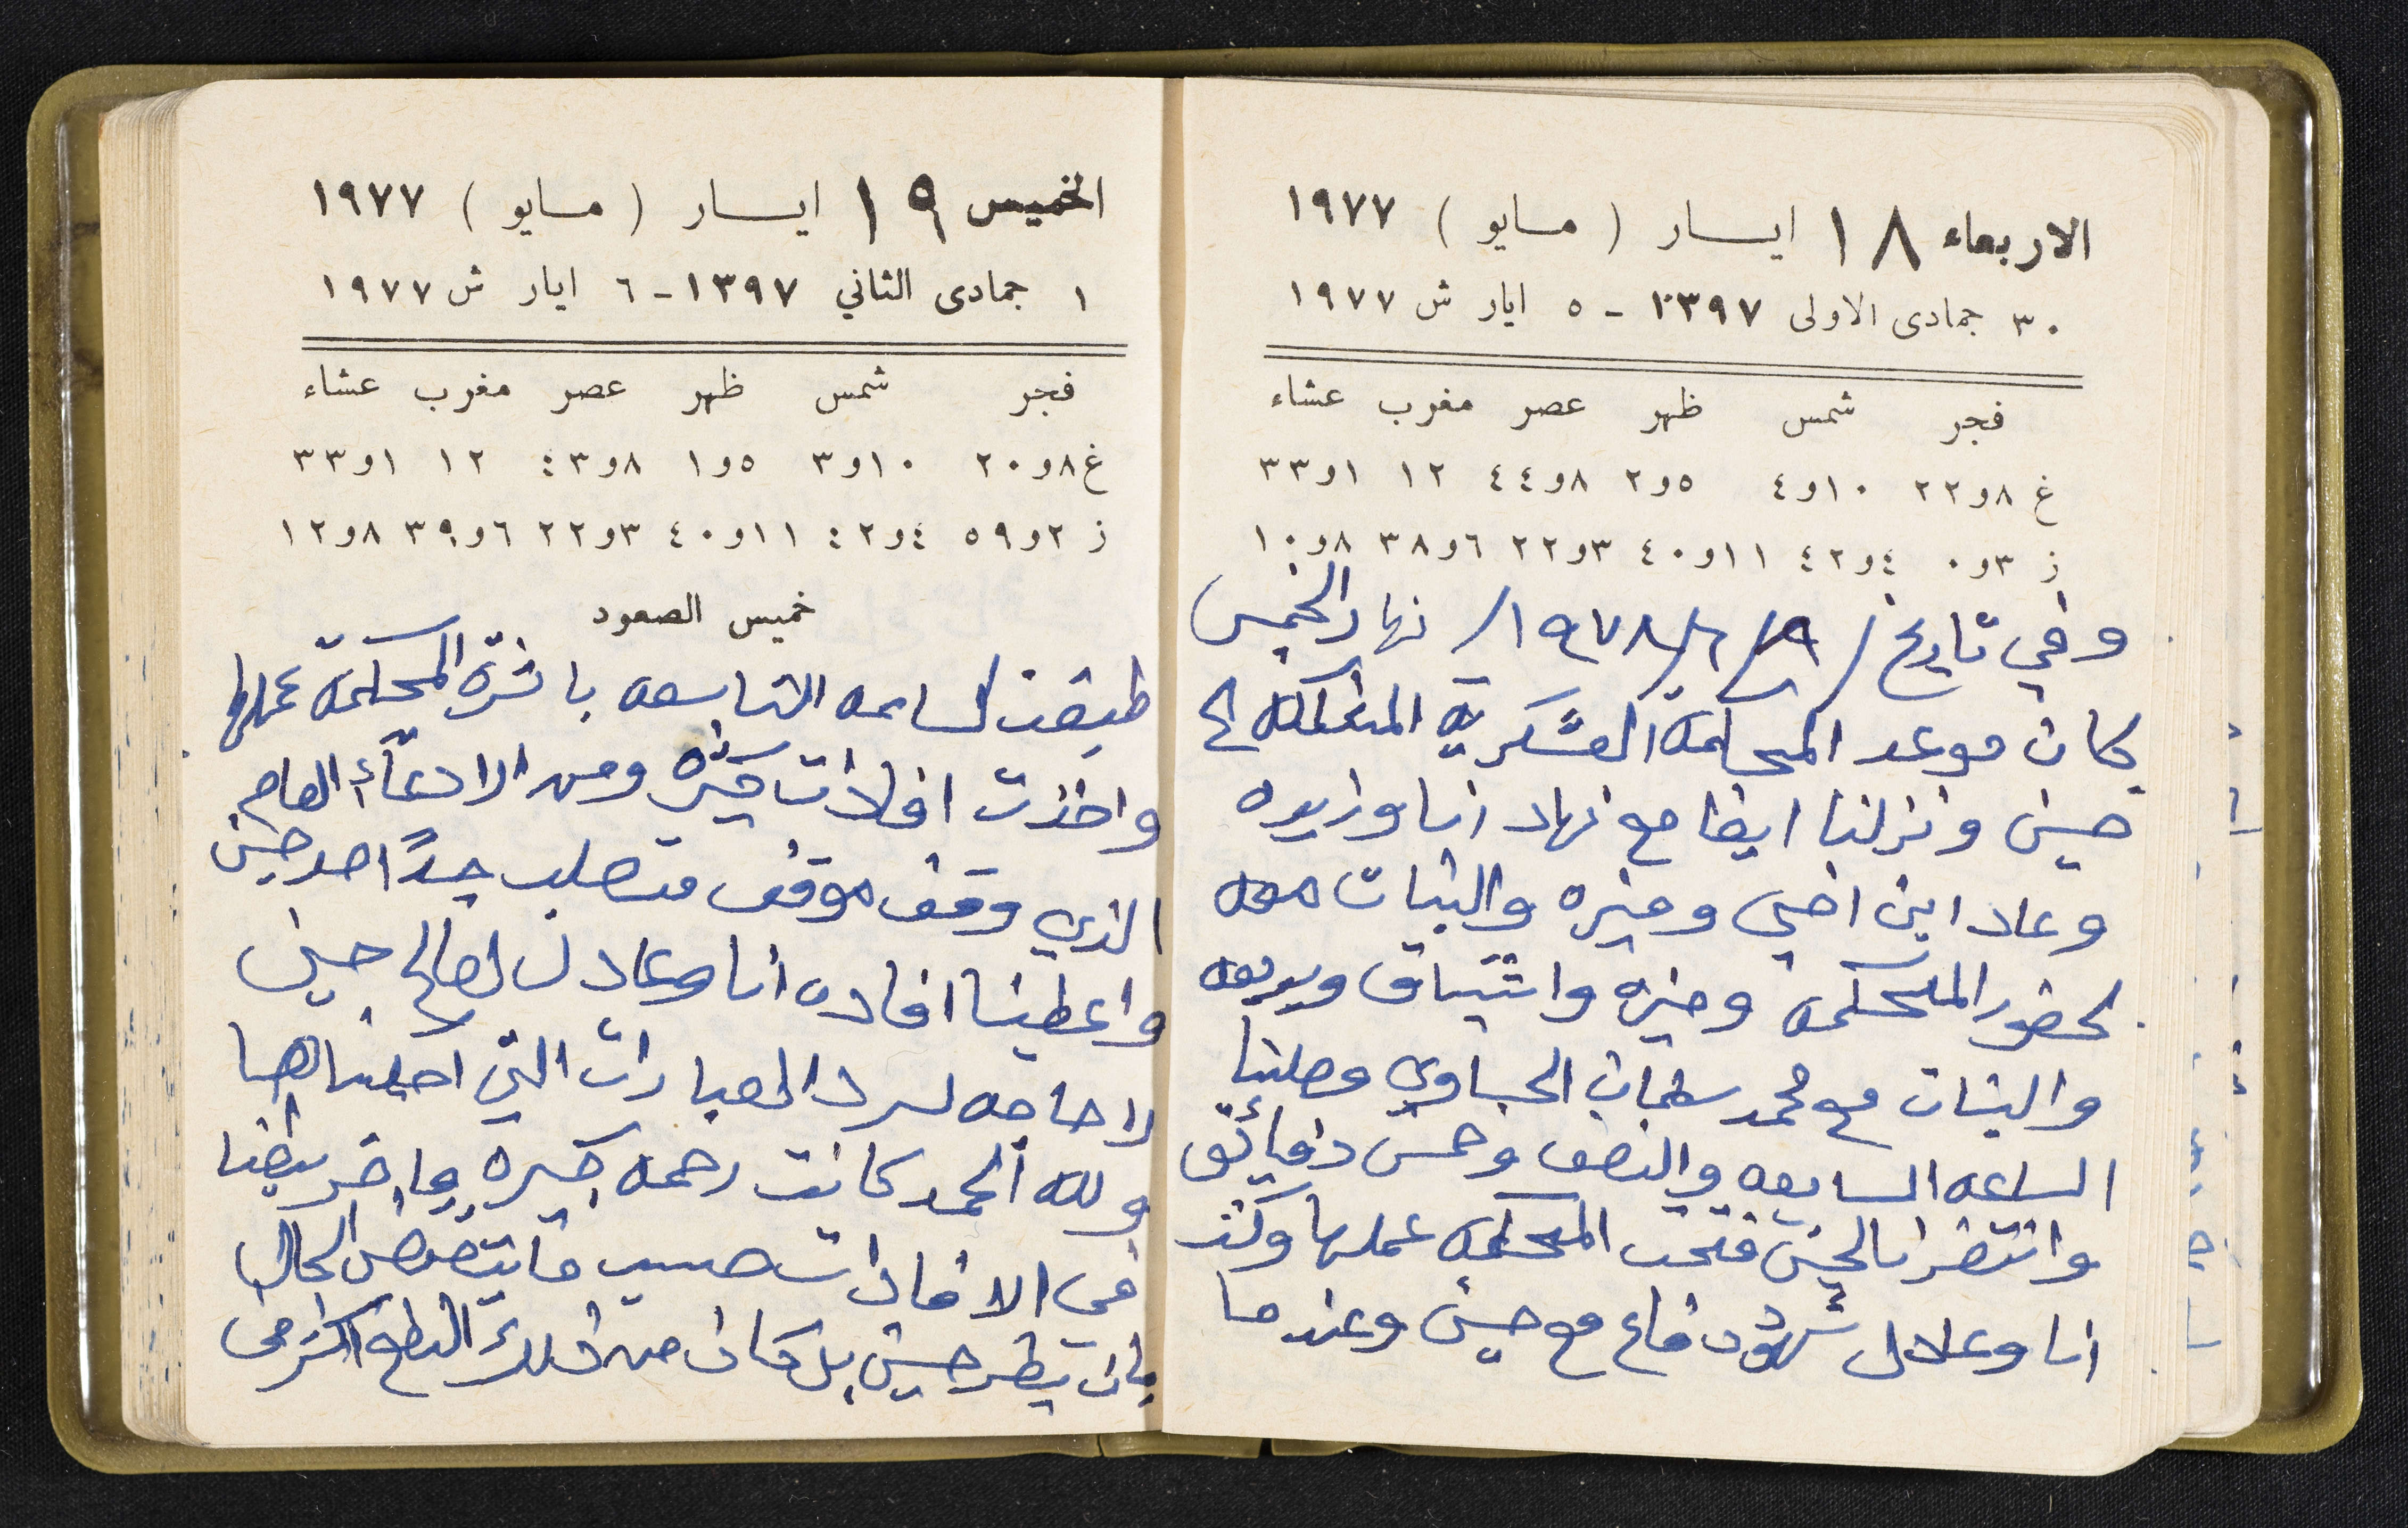 الاربعاء ١٨ ايسار ( مسايو ) ١٩٧٧
٣٠ جمادى الاولى ١٣٩٧ - ٥ ايار ش ١٩٧٧
فجر شمس ظهر عصر مغرب عشاء
غ ٨و٢٢ ١٠و٤ ٥و٢ ٨و٤٤ ١٢ ١و٣٣
ز ٣و٠ ٤و٤٢ ١١و٤٠ ٣و٢٢ ٦و٣٨ ٨و١٠
وفي تاريخ / نهار الخميس
كان موعد المحاكمة العسكرية الى
حسين ونزلنا ايضا مع نهاد انا وزايده
وعاد ابن اخي ومنيره والبنات معه
لحضور المحكمه ومنيره واشتياق وبديعه
والبنات مع محمد سليمان الحساوي وصلنا
الساعه السابعه والنصف وخمس دقائق
وانتضرنا لحين فتحت المحكمه عملها وكنت
انا وعلال شهود دفاع مع حسين وعندما
الخميس ١٩ ايسار ( مسايو ) ١٩٧٧
١ جمادى الثاني ١٣٩٧ - ٦ ايار ش ١٩٧٧
فجر شمس ظهر عصر مغرب عشاء
غ ٨و٢٠ ١٠و٣ ٥و١ ٨و٤٣ ١٢ ١و٣٣
ز ٢و٥٩ ٤و٤٢ ١١و٤٠ ٣و٢٢ ٦و٣٩ ٨و١٢
خميس الصعود
الساعه التاسعه باشرة المحكمة عملها
واخذت افادات كثيره ومن الادعاء العام
الذي وقف موقف متصلب جداً ضد حسين
واعطينا افاده انا وعادل لصالح حسين
لا حاجه لسرد العبارات التي
ولله الحمد كانت رحمه كبيره
في الافادات حسب الحال
بان حسين بل كان من